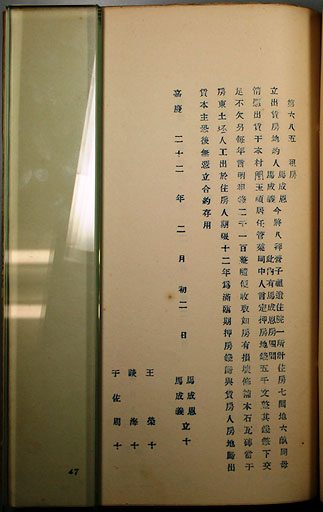 第六八五 租房
立出賃房地約人馬成恩馬成義今將
此內有馬成恩房四間
祖遺住院一所計住房七間地六畝同母
情愿出賃于本村
居住管業同中人言定押房地錢五千文整其錢當下交
足不欠另每年言明租錢二千一百整
收取如房有損壞
木石瓦磚當于
房東土坯人工出於住房人期限十二年為滿臨期押房錢歸與賃房人房地歸出
賃本主恐後無憑立合約存用
嘉慶 二十二 年 二 月 初二 日
馬成恩
馬成義
立十
王 榮十
海十
于佐周十
67